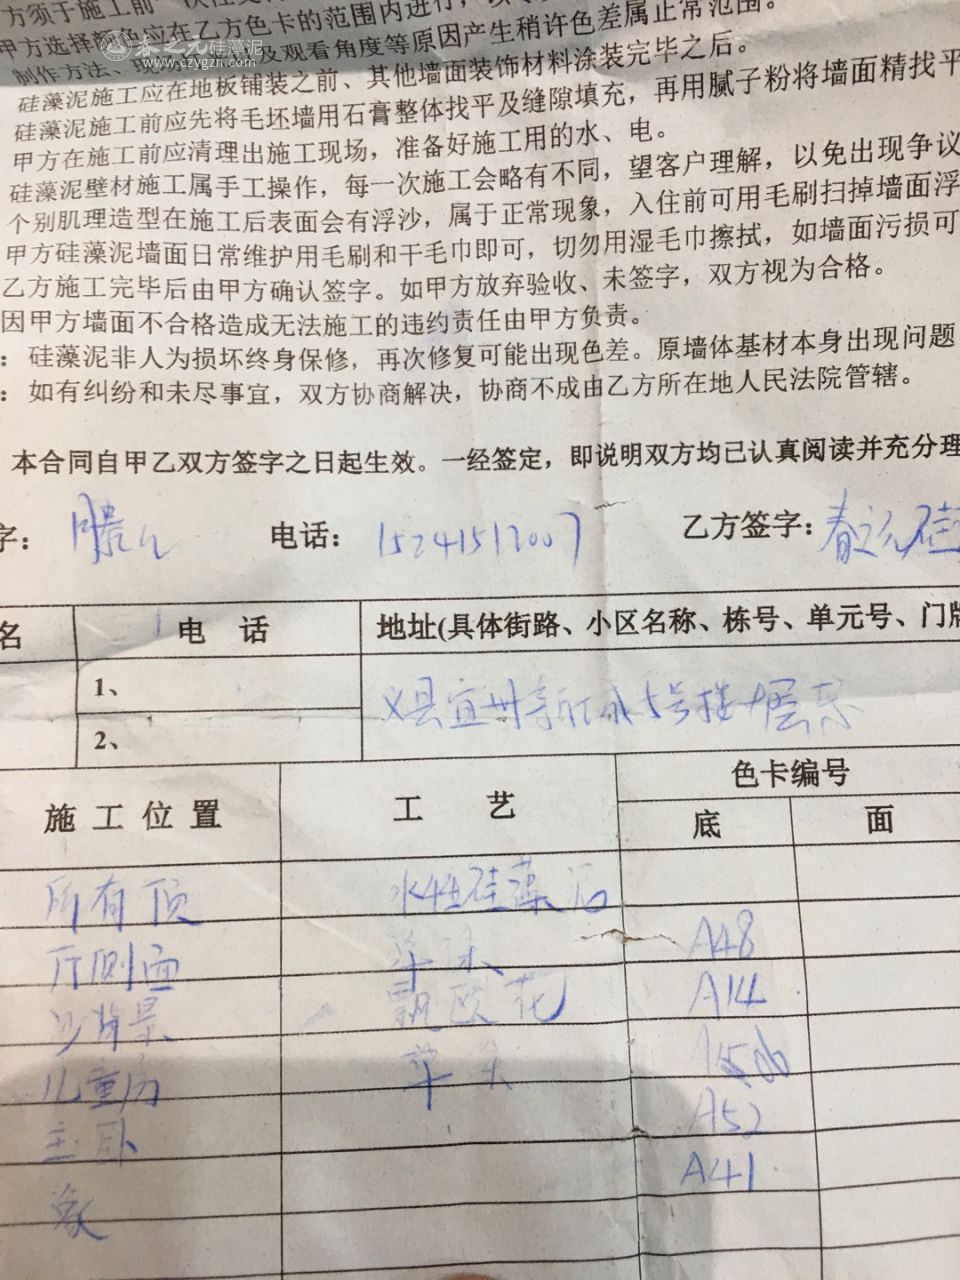 方须于施工前一次性
甲方选择颜色应在乙方色卡的范围内进行，
春之元硅藻泥
www.czygzn.cn
制作方法、现场 及观看角度等原因产生稍许色差属正常范围。
硅藻泥施工应在地板铺装之前、其他墙面装饰材料涂装完毕之后。
硅藻泥施工前应先将毛坯墙用石膏整体找平及缝隙填充，再用腻子粉将墙面精找平
甲方在施工前应清理出施工现场，准备好施工用的水、电。
硅藻泥壁材施工属手工操作，每一次施工会略有不同，望客户理解，以免出现争议
个别肌理造型在施工后表面会有浮沙，属于正常现象，入住前可用毛刷扫掉墙面浮
甲方硅藻泥墙面日常维护用毛刷和干毛巾即可，切勿用湿毛巾擦拭，如墙面污损可
乙方施工完毕后由甲方确认签字。如甲方放弃验收、未签字，双方视为合格。
因甲方墙面不合格造成无法施工的违约责任由甲方负责。
：硅藻泥非人为损坏终身保修，再次修复可能出现色差。原墙体基材本身出现问题
：如有纠纷和未尽事宜，双方协商解决，协商不成由乙方所在地人民法院管辖。
本合同自甲乙双方签字之日起生效。一经签定，即说明双方均已认真阅读并充分理
字： 电话：15241517007 乙方签字：春之元硅
名 电 话 地址(具体街路、小区名称、栋号、单元号、门牌
1、
2、
义县宜州新 5号楼 层
施工位置 工 艺 色卡编号
底 面
所有顶 水性硅藻泥
厅侧面 A48
沙背景 欧花 A14
儿童房 草
主卧 A52
A41